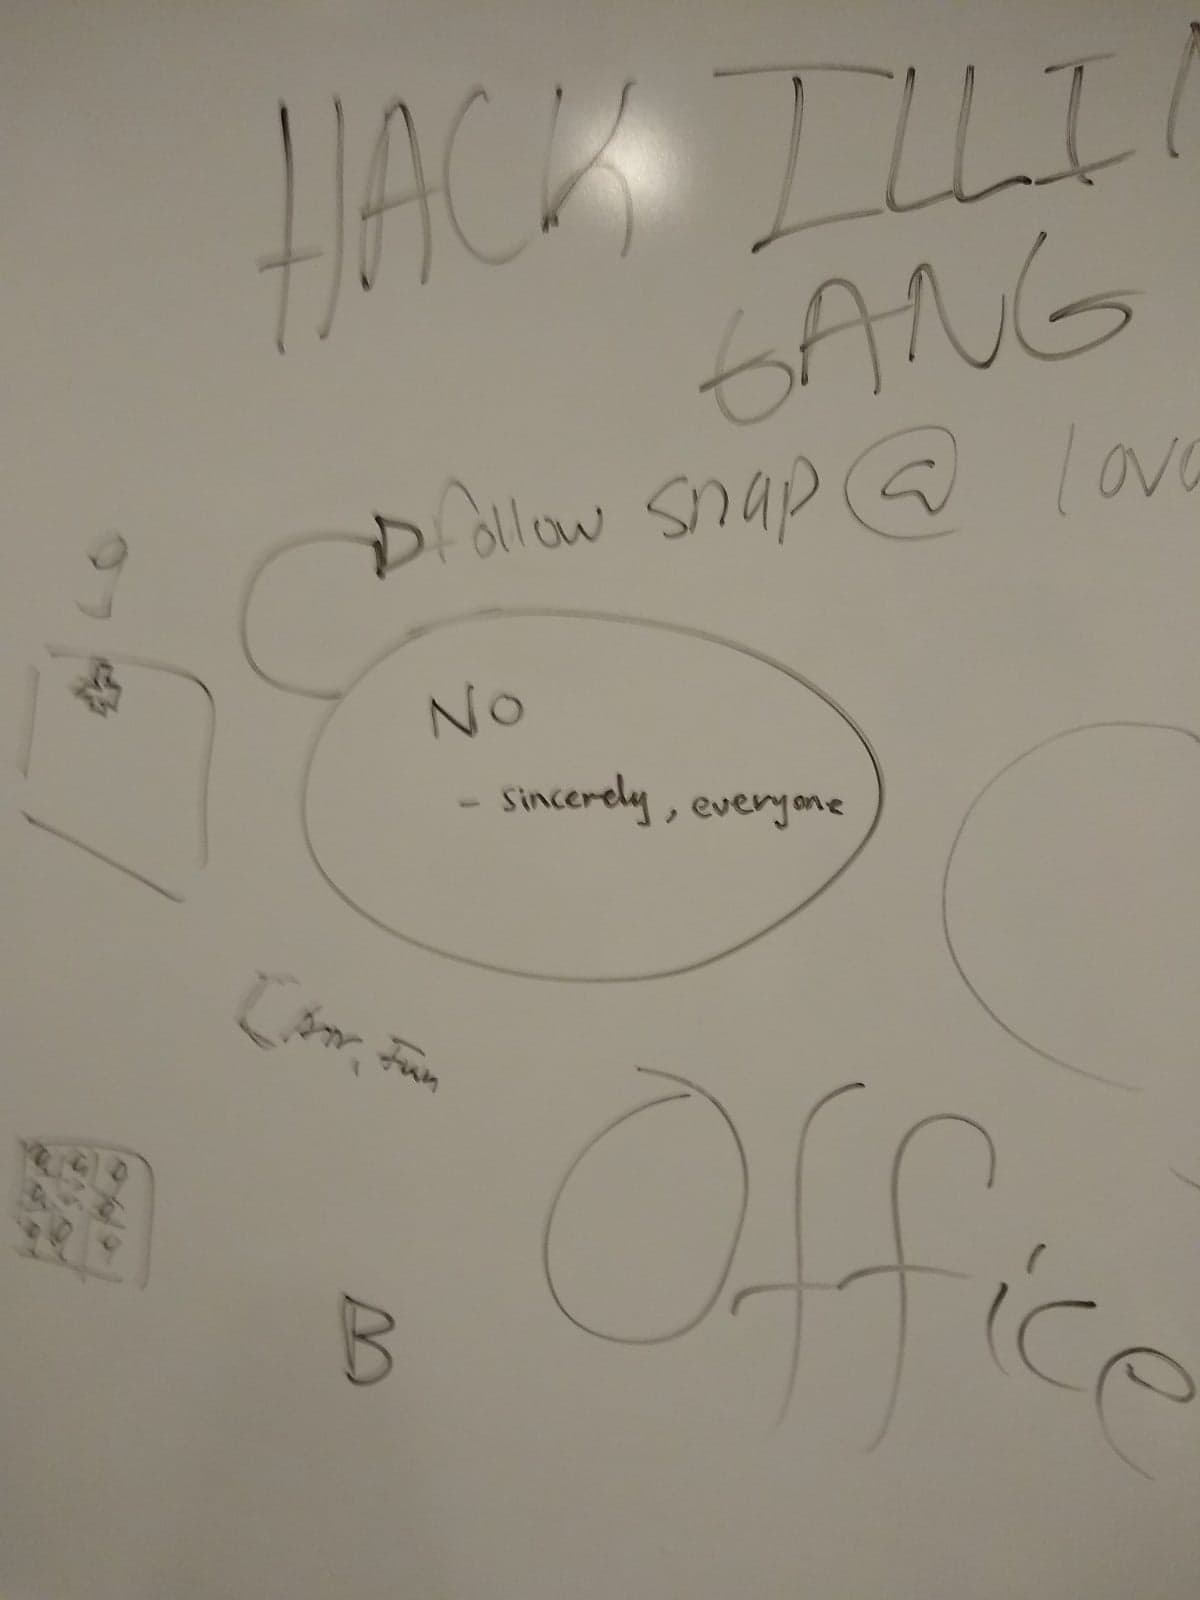 HACK ILLI
GANG
follow snap @
9
NO
- sincerely, everyone
Fun
B
Office